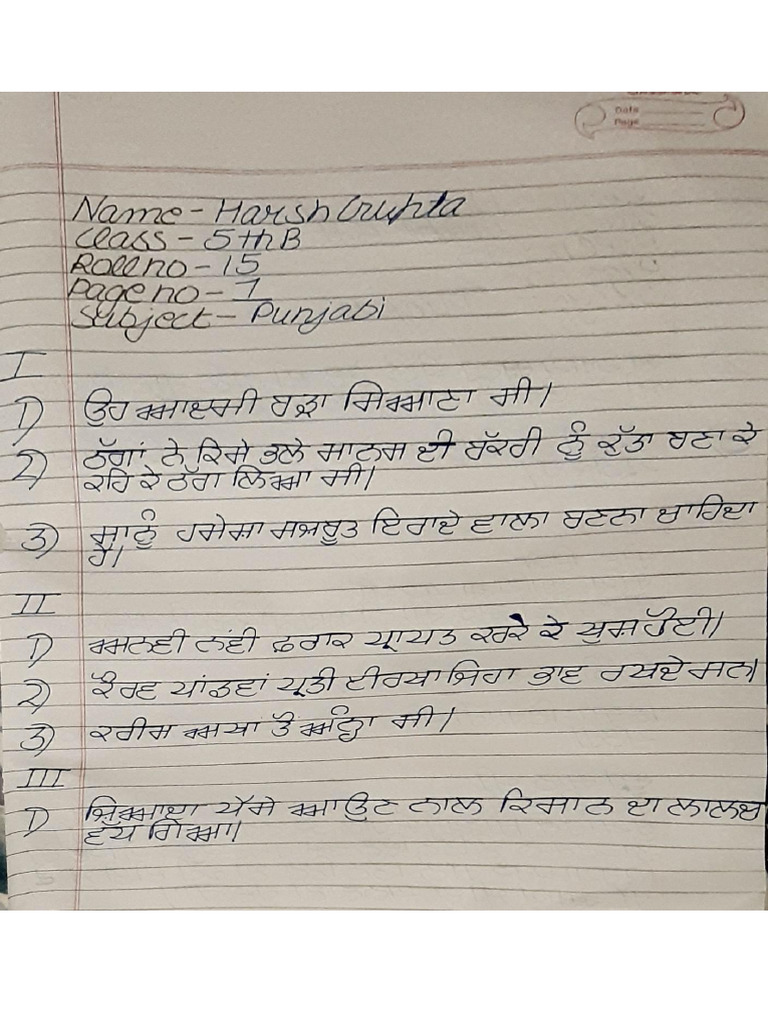 Date
Page
Name - Harsh Gupta
Class - 5th B
Roll no - 15
Page no - 1
Subject - Punjabi
I
1) ਉਹ ਆਦਮੀ ਬੜਾ ਸਿਆਣਾ ਸੀ।
2) ਠੱਗਾਂ ਨੇ ਕਿਸੇ ਭਲੇ ਮਾਨਸ ਦੀ ਬੱਕਰੀ ਨੂੰ ਕੁੱਤਾ ਬਣਾ ਕੇ
ਕਹਿ ਕੇ ਠੱਗ ਲਿਆ ਸੀ।
3) ਸਾਨੂੰ ਹਮੇਸ਼ਾ ਮਜ਼ਬੂਤ ਇਰਾਦੇ ਵਾਲਾ ਬਣਨਾ ਚਾਹਿਦਾ
ਹੈ।
II
1) ਅਨਵੀ ਨਵੀਂ ਪ੍ਰਾਪਤ ਕਰਕੇ ਕੇ ਖੁਸ਼ ਹੋਈ।
2) ਕੌਰਵ ਪਾਂਡਵਾਂ ਪ੍ਰਤੀ ਈਰਖਾ ਜਿਹਾ ਭਾਵ ਰਖਦੇ ਸਨ।
3) ਕਰੀਮ ਅਖਾ ਤੋਂ ਅੰਨ੍ਹਾ ਸੀ।
III
1) ਜ਼ਿਆਦਾ ਪੈਸੇ ਆਉਣ ਨਾਲ ਕਿਸਾਨ ਦਾ ਲਾਲਚ
ਵੱਧ ਗਿਆ।